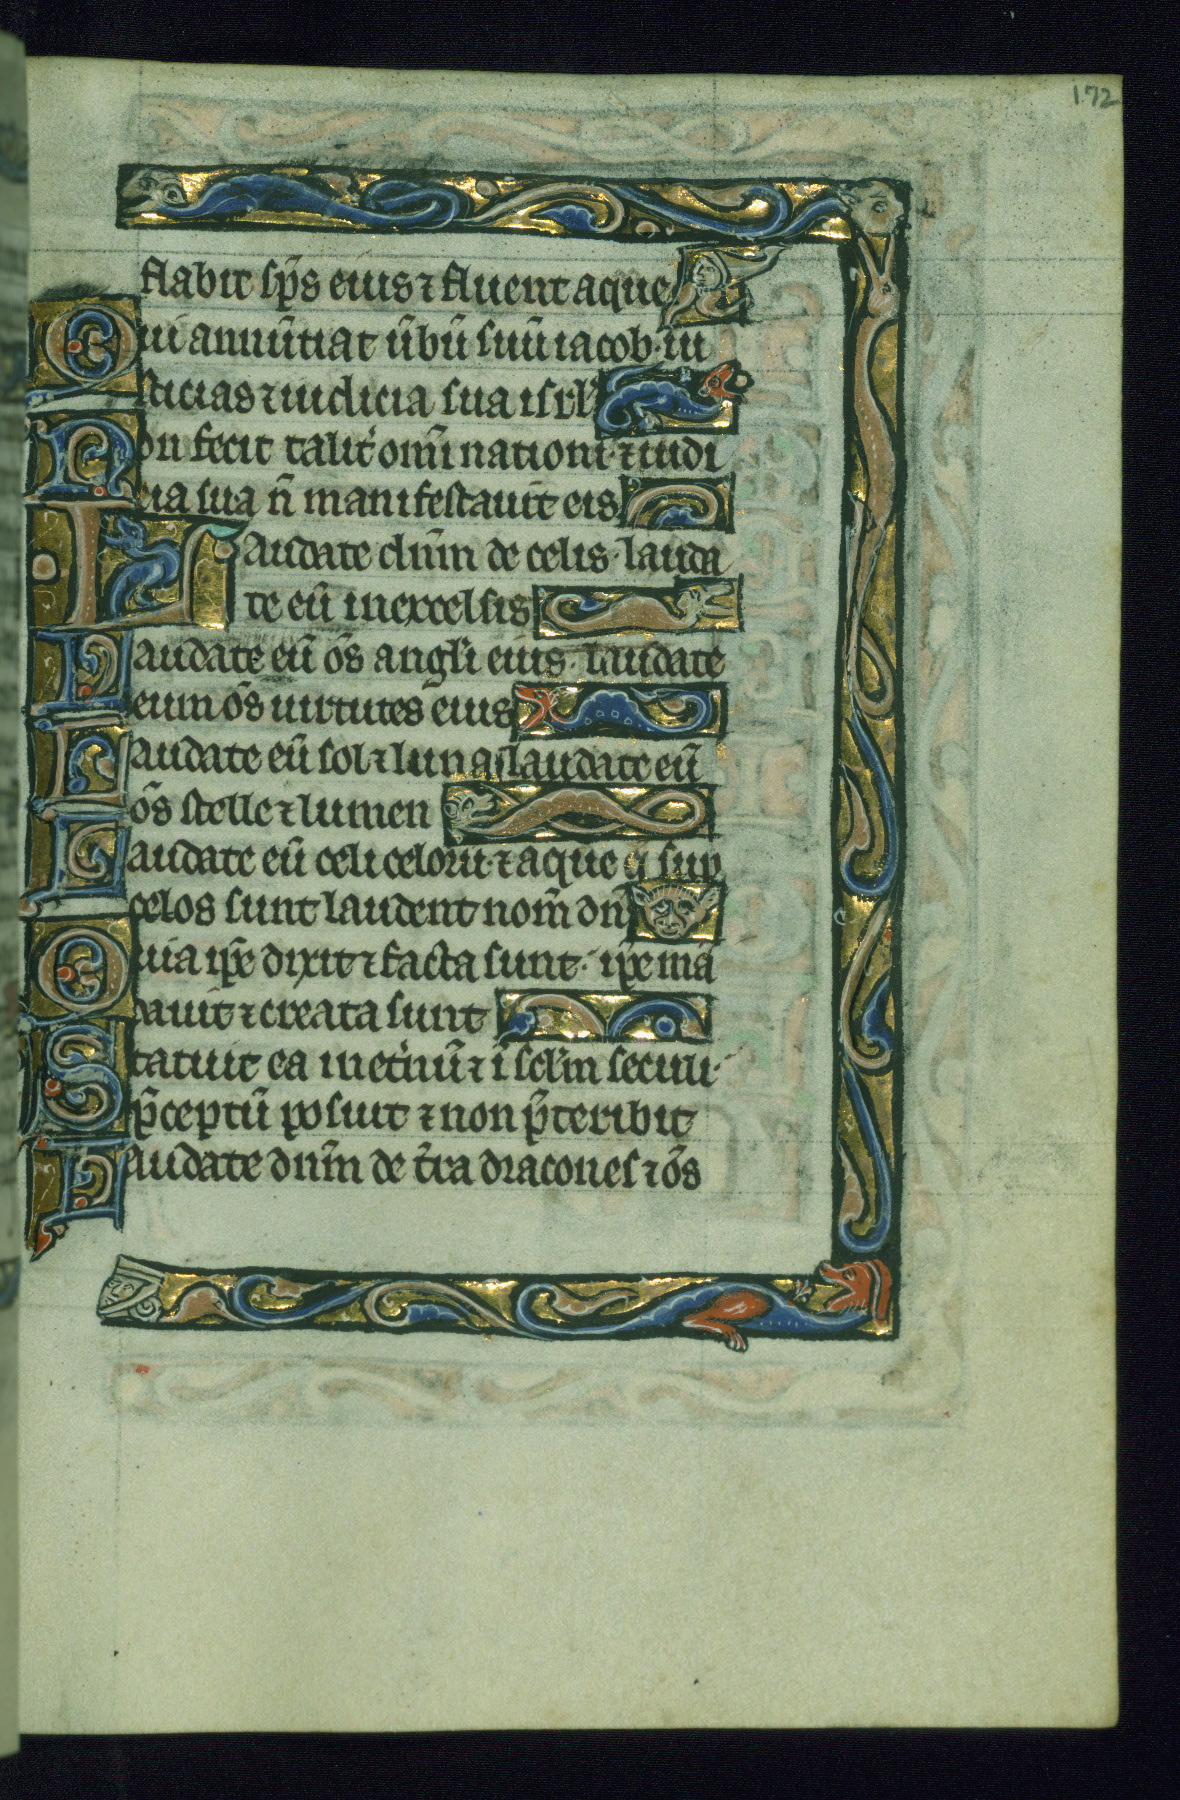 172
flabit sp̄s eius ⁊ fluent aque
Qui annūtiat ūbū suū iacob · iu
sticias ⁊ iudicia sua isrl'
Non fecit talit' omī nationi · ⁊ iudi
cia sua n̄ manifestauit eis
Laudate dn̄m de celis · lauda
te eū in excelsis
Laudate eū ōs angl'i eius · laudate
eum ōs uirtutes eius
Laudate eū sol ⁊ luna laudate eū
ōs stelle ⁊ lumen
Laudate eū celi celoru ⁊ aque q sup
celos sunt laudent nom̄ dn̄i
Quia ip̄e dixit ⁊ facta sunt · ip̄e mā
dauit ⁊ creata sunt
Statuit ea in et'nū ⁊ ī sc̄lm seculi ·
p̄ceptū posuit ⁊ non p̄teribit
Laudate dn̄m de t'ra dracones ⁊ ōs